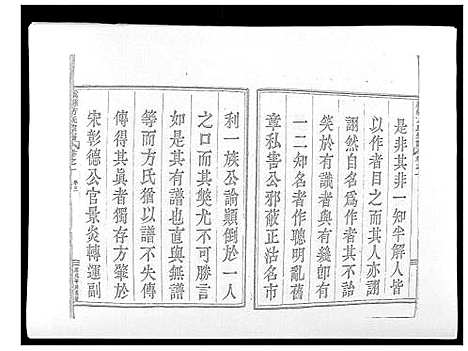 是非其非一知半解人皆
以作者目之而其人亦謬
詡然自名爲作者其初貽
笑於有識者與有幾卽有
一二知名者作聰明亂舊
章私害公邪蔽正沽名市
利一族公論顚倒於一人
之口而其獘尤不可勝言
如是其有譜也直與無譜
等而方氏猶以譜不失傳
傳得其眞者獨存方肇於
宋彰德公官景炎轉運副